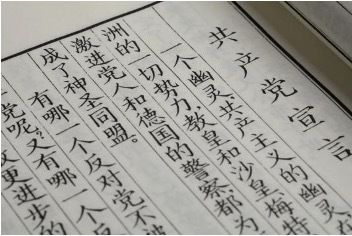 共产党宣言
一个幽灵,共产主义的幽灵在
洲的一切势力,教皇和沙皇梅特
激进党人和德国的警察都为
成了神圣同盟。
有哪一个反对党不被
党呢?又有哪一个反
更进步的